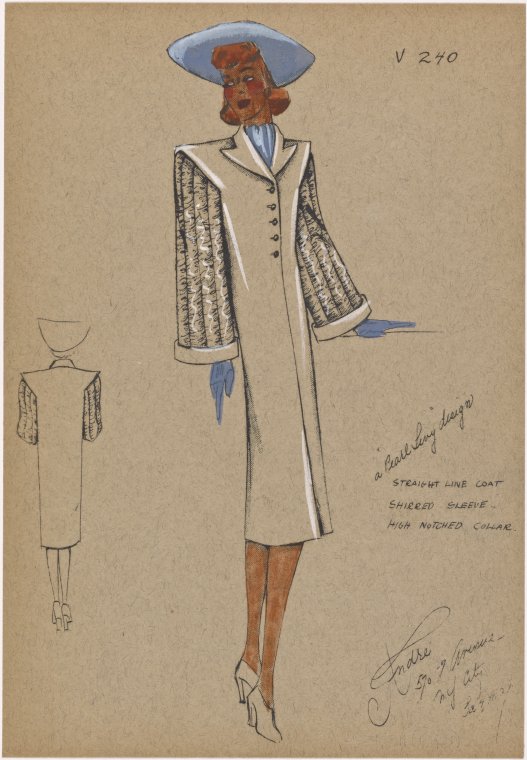 V 240
"a Pearl Levy design"
STRAIGHT LINE COAT
SHIRRED SLEEVE..
HIGH NOTCHED COLLAR.
André
570 7 Avenue
NY City